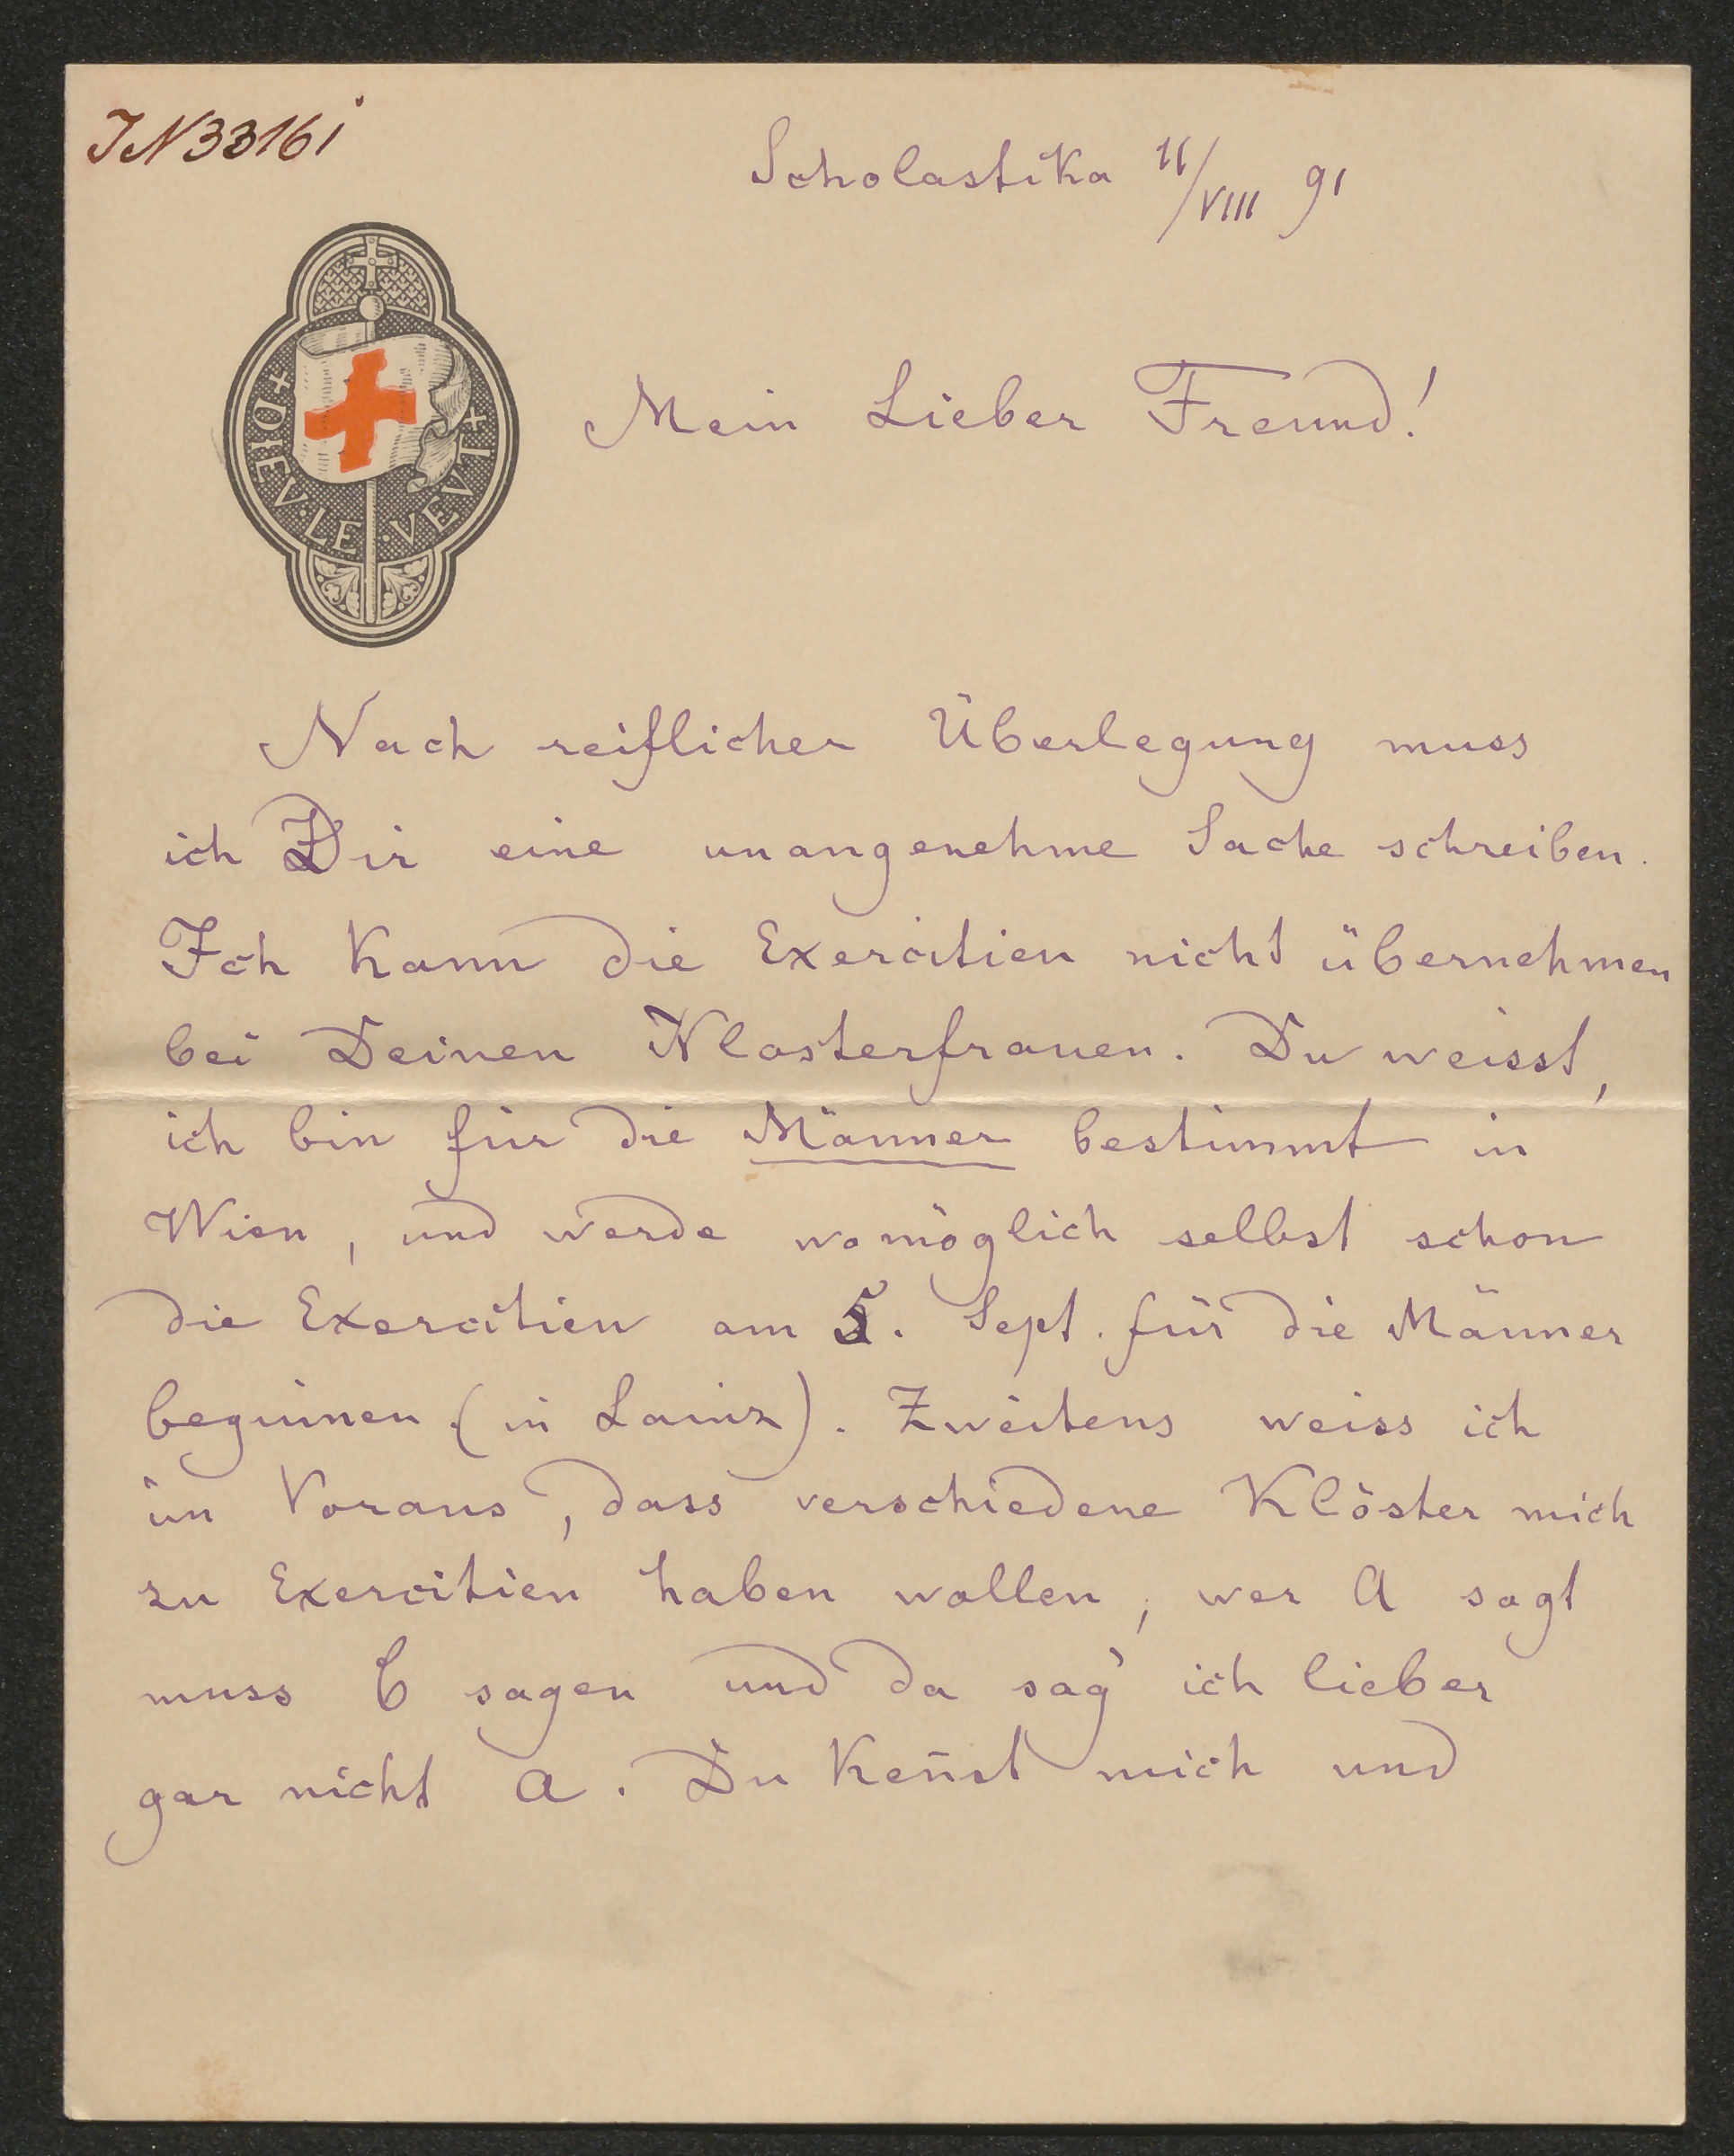 IN 33161
Scholastika 11/VIII 91
+ DIEV · LE · VEVT +
Mein Lieber Freund!
Nach reiflicher Überlegung muss
ich Dir eine unangenehme Sache schreiben.
Ich kann die Exercitien nicht übernehmen
bei Deinen Klosterfrauen. Du weisst,
ich bin für die Männer bestimmt in
Wien, und werde womöglich selbst schon
die Exercitien am 5. Sept. für die Männer
beginnen (in Lainz). Zweitens weiss ich
im Voraus, dass verschiedene Klöster mich
zu Exercitien haben wollen, wer A sagt
muss B sagen und da sag' ich lieber
gar nicht A. Du keñst mich und